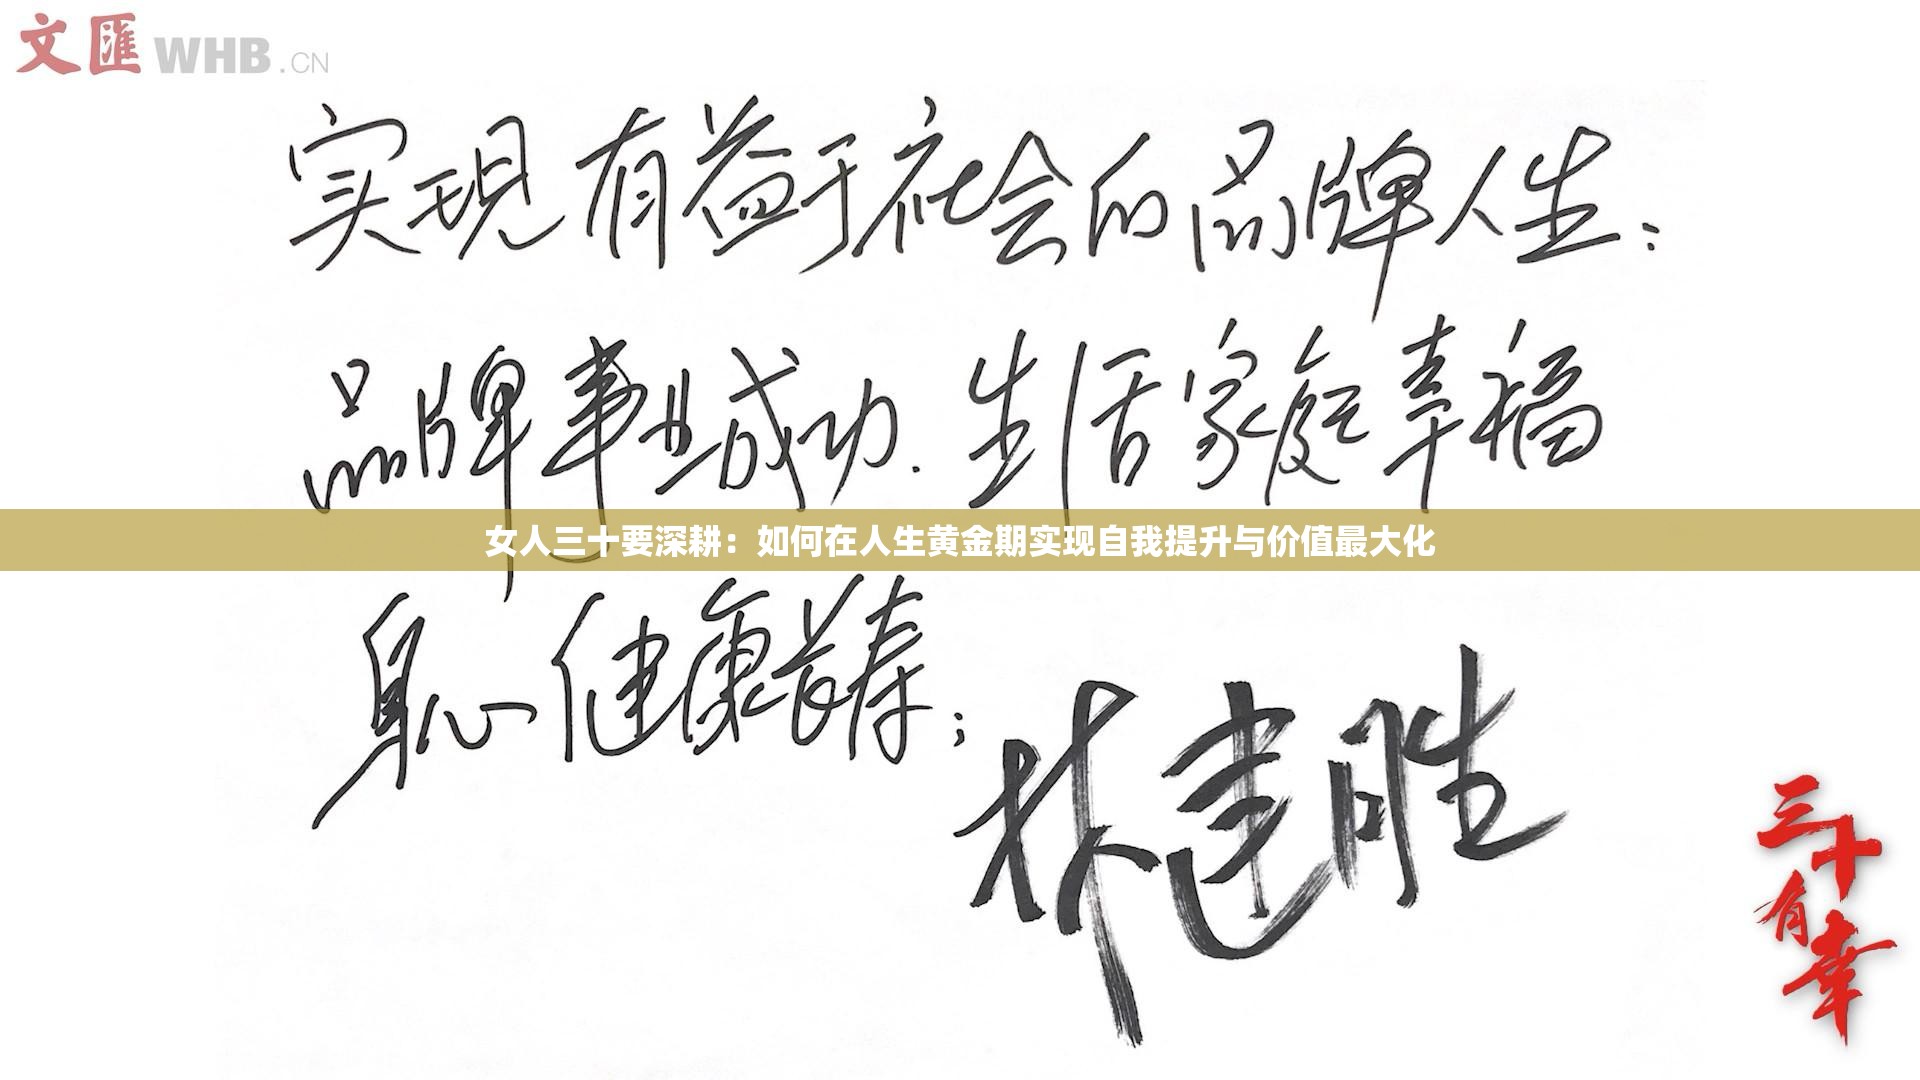 文匯 WHB.CN
实现有益于社会的品牌人生：
品牌事业成功.生活家庭幸福
女人三十要深耕：如何在人生黄金期实现自我提升与价值最大化
身心健康长寿；
林建胜
三十
有幸